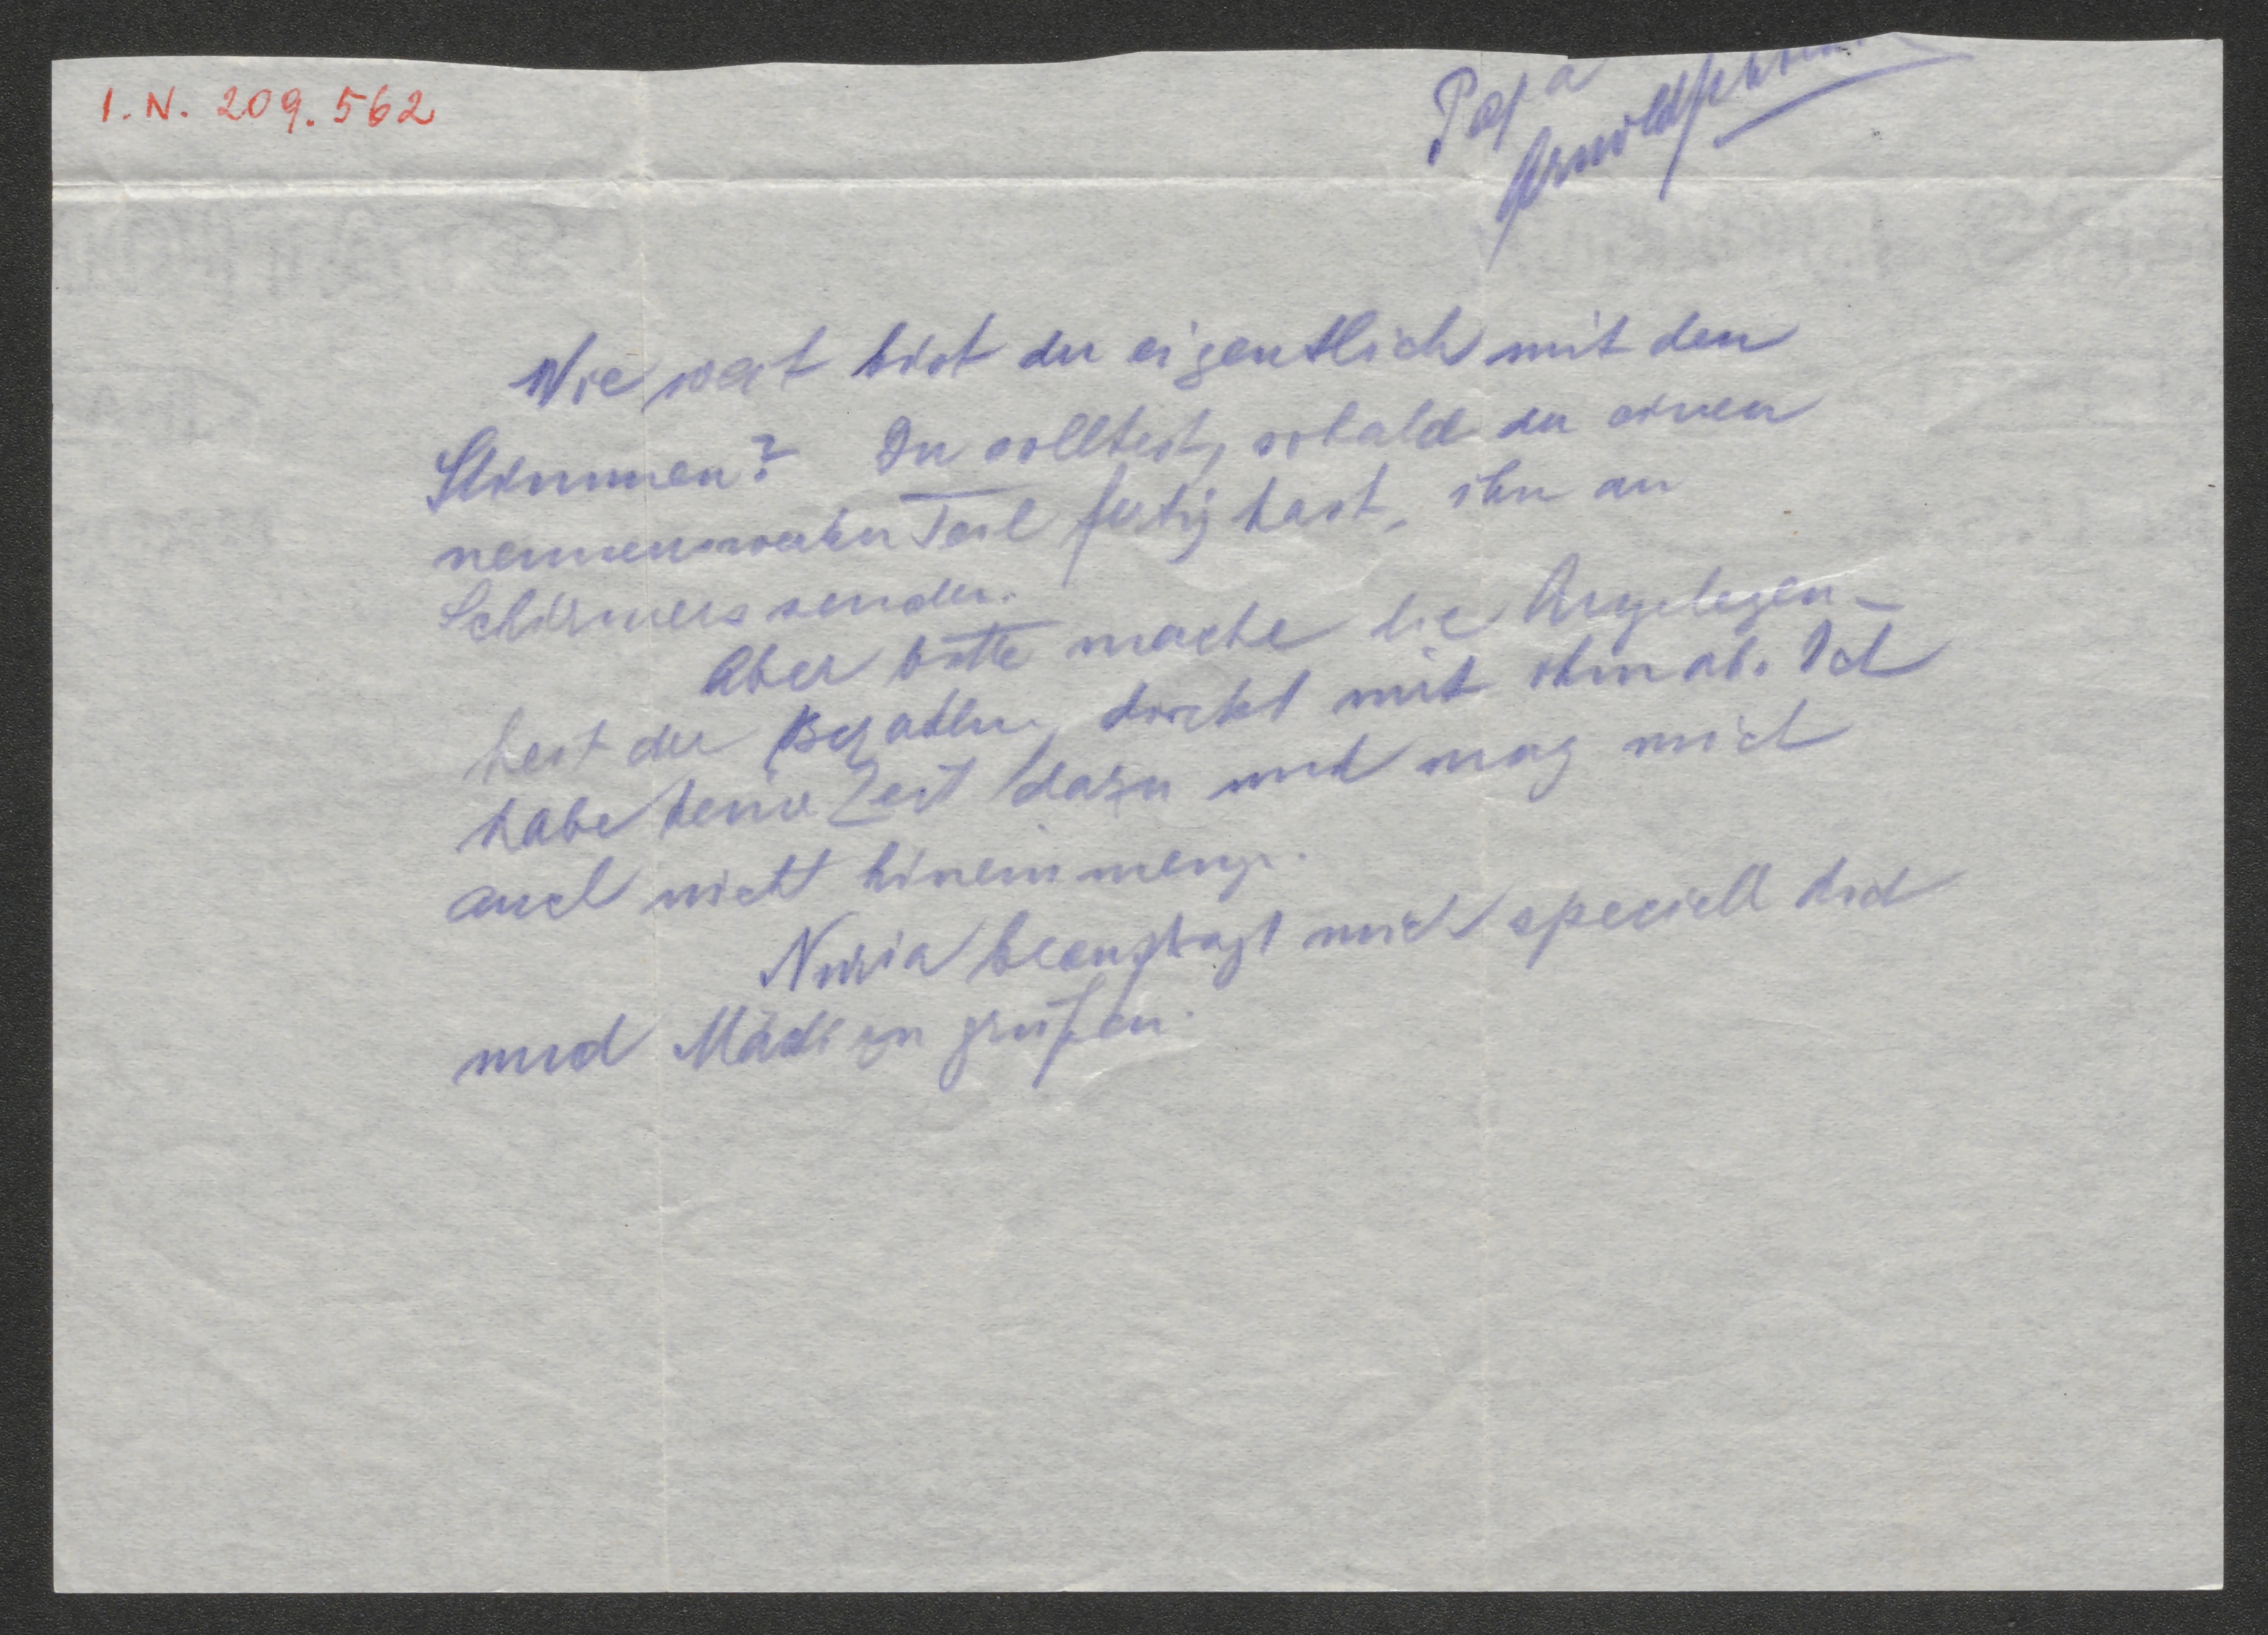 I.N. 209.562
Papa
Arnold Schön
Wie weit bist du eigentlich mit den
Stimmen? Du solltest, sobald du einen
nennenswerten Teil fertig hast, ihn an
Schirmers senden.
Aber bitte mache die Angelegen-
heit der Bezahlung direkt mit ihm ab. Ich
habe keine Zeit dazu und mag mich
auch nicht hineinmengen.
Nuria beauftragt mich speciell dich
und Mädi zu grüßen.